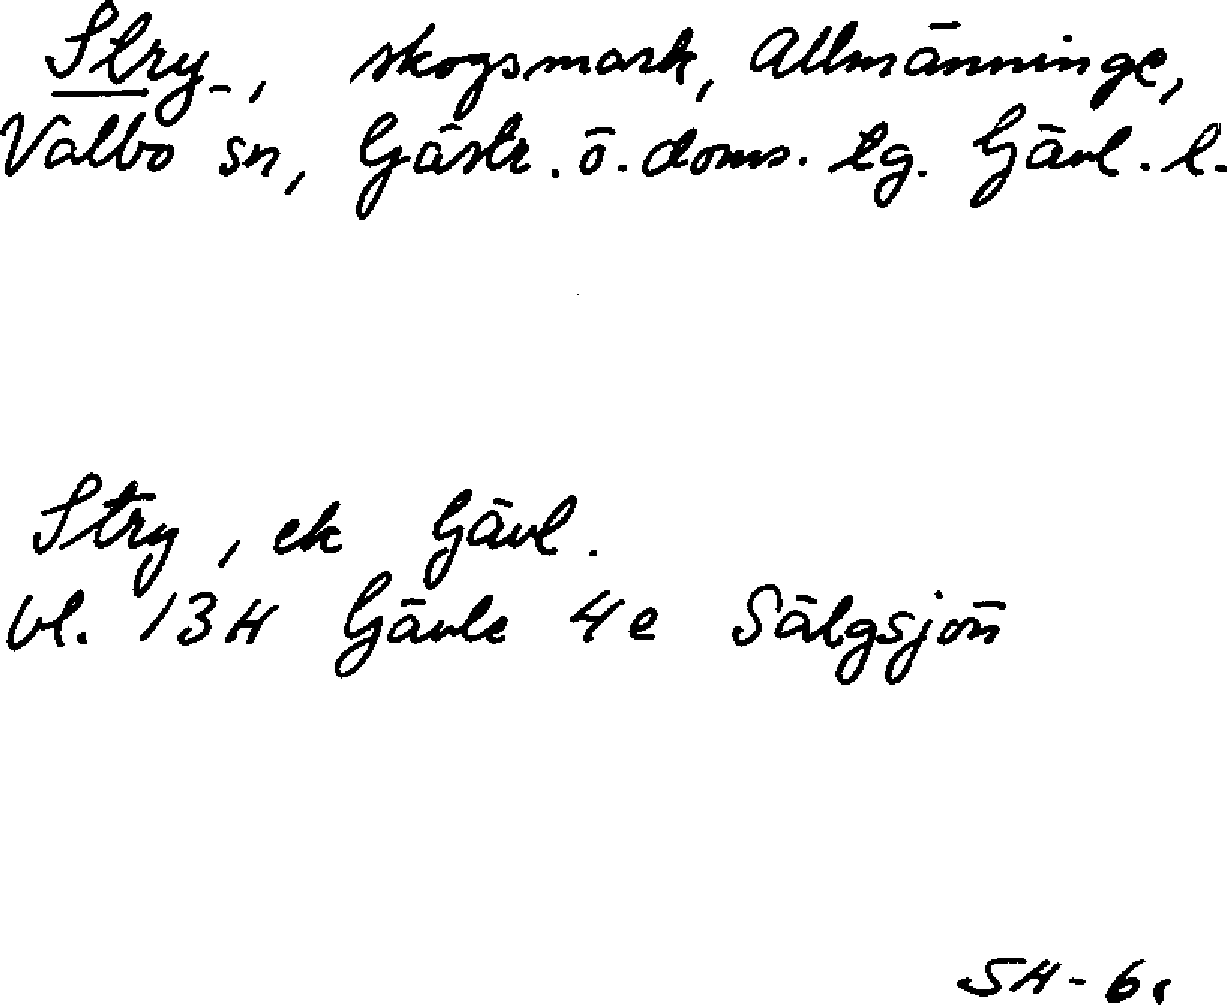 Stry-, skogsmark, Allmänninge,
Valbo sn, Gästr. ö. doms. tg. Gävl. l.
Stry, ek Gävl.
bl. 13H Gävle 4e Sälgsjön
SH-6.